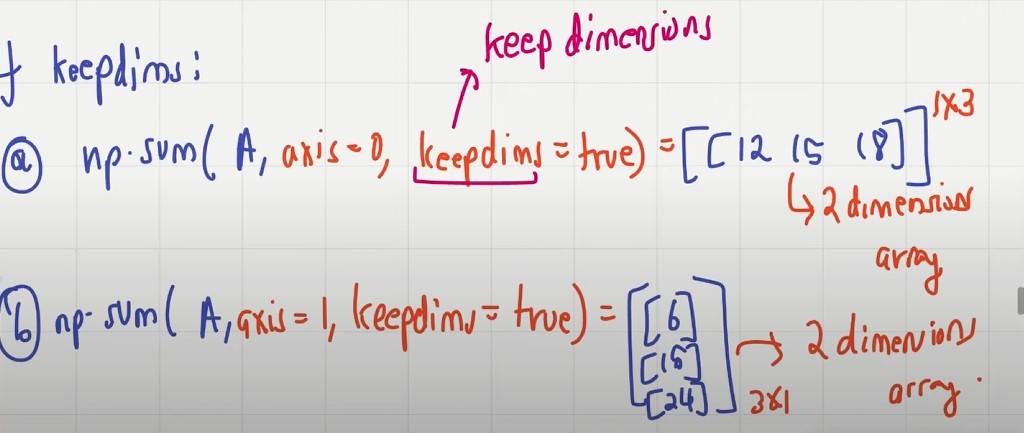 keep dimensions
keepdims:
(a) np.sum( A, axis=0, keepdims=true) = [[12 15 18]] 1x3
↳ 2 dimension
array
(b) np.sum( A, axis=1, keepdims=true) = [[6]
[15]
[24]] 3x1
→ 2 dimensions
array.